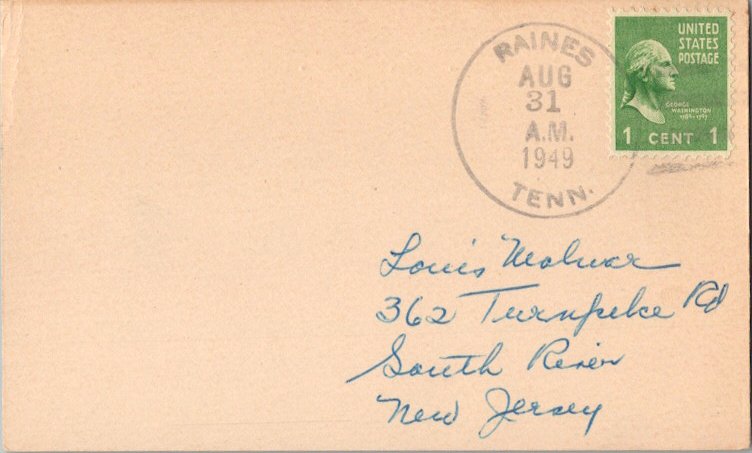 RAINES
AUG
31
A.M.
1949
TENN.
UNITED
STATES
POSTAGE
GEORGE
WASHINGTON
1789-1797
1 CENT 1
Louis Molnar
362 Turnpike Rd
South River
New Jersey